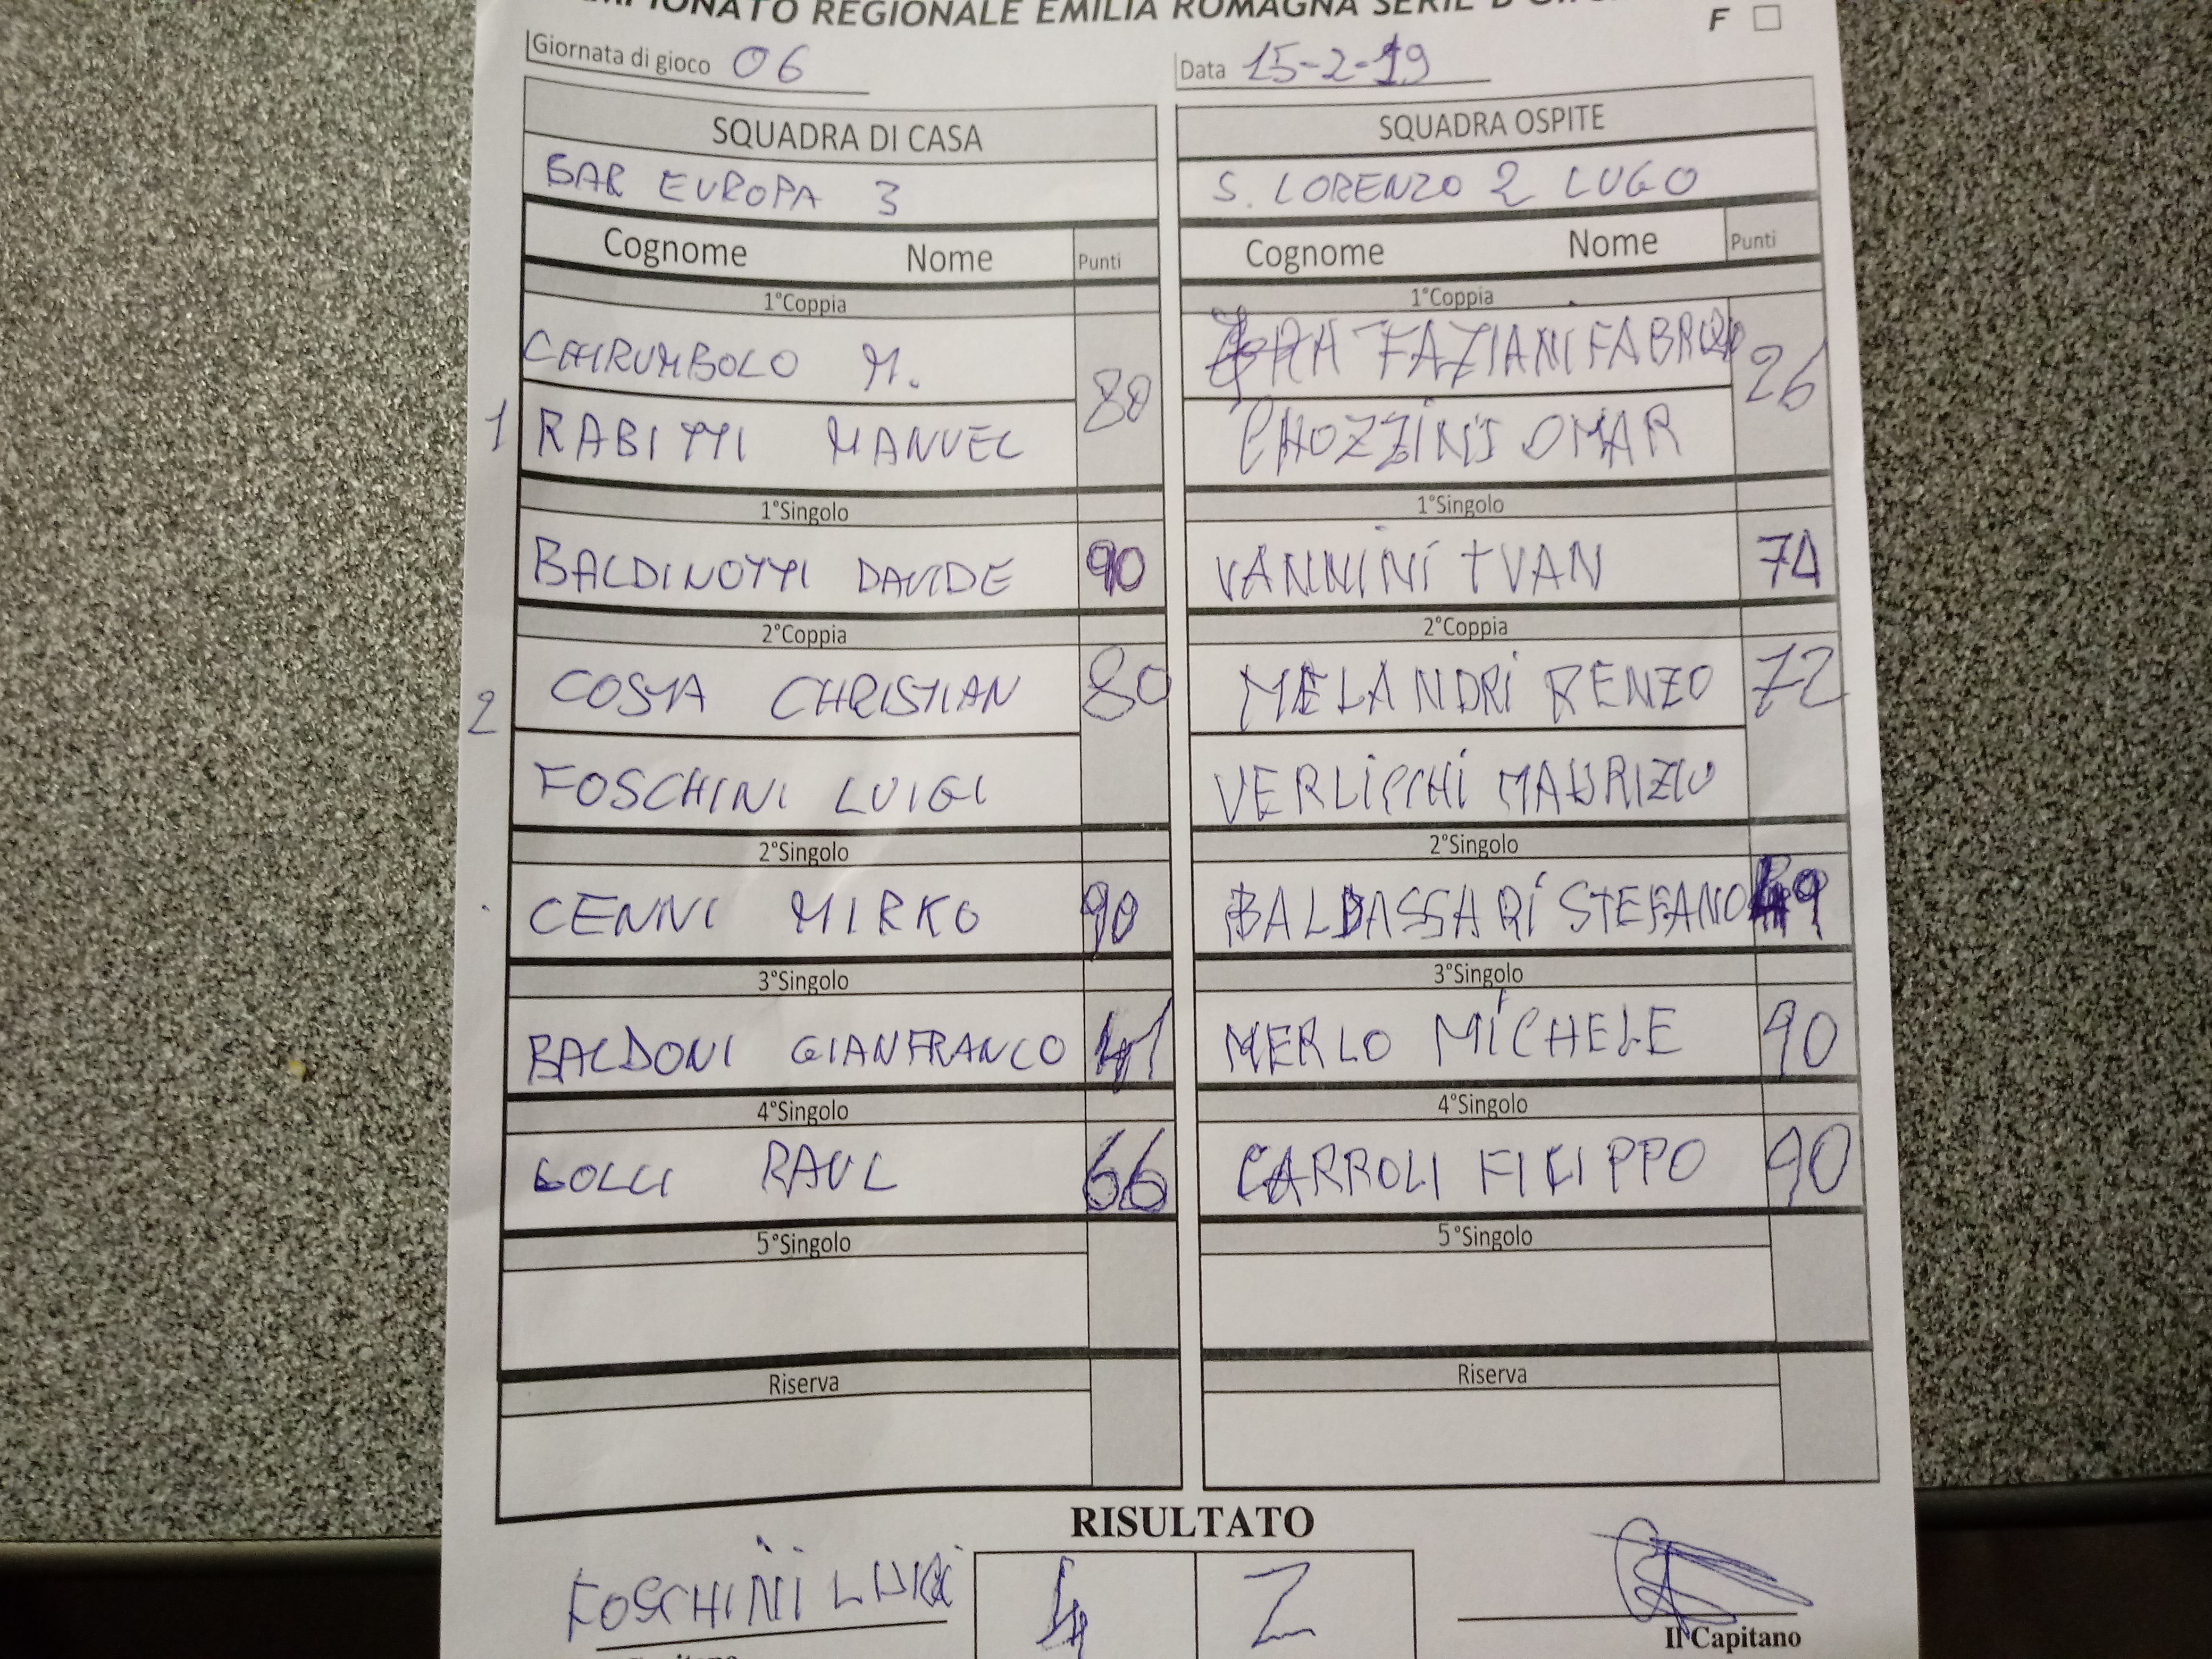 CAMPIONATO REGIONALE EMILIA ROMAGNA SERIE D
F
Giornata di gioco 06 Data 15-2-19
SQUADRA DI CASA
BAR EUROPA 3
Cognome Nome Punti
1°Coppia
M. 80
1 RABITTI MANUEL
1°Singolo
BALDINOTTI DAVIDE 90
2°Coppia
2 COSTA CHRISTIAN 80
FOSCHINI LUIGI
2°Singolo
CENNI MIRKO 90
3°Singolo
BALDONI GIANFRANCO 41
4°Singolo
RAUL 66
5°Singolo
Riserva
SQUADRA OSPITE
S. LORENZO 2 LUGO
Cognome Nome Punti
1°Coppia
26
OMAR
1°Singolo
VANNINI IVAN 74
2°Coppia
MELANDRI RENZO 72
VERLICCHI MAURIZIO
2°Singolo
BALDASSARI STEFANO 49
3°Singolo
MERLO MICHELE 90
4°Singolo
CARROLI FILIPPO 90
5°Singolo
Riserva
RISULTATO
FOSCHINI LUIGI 4 2
Il Capitano
Capitano